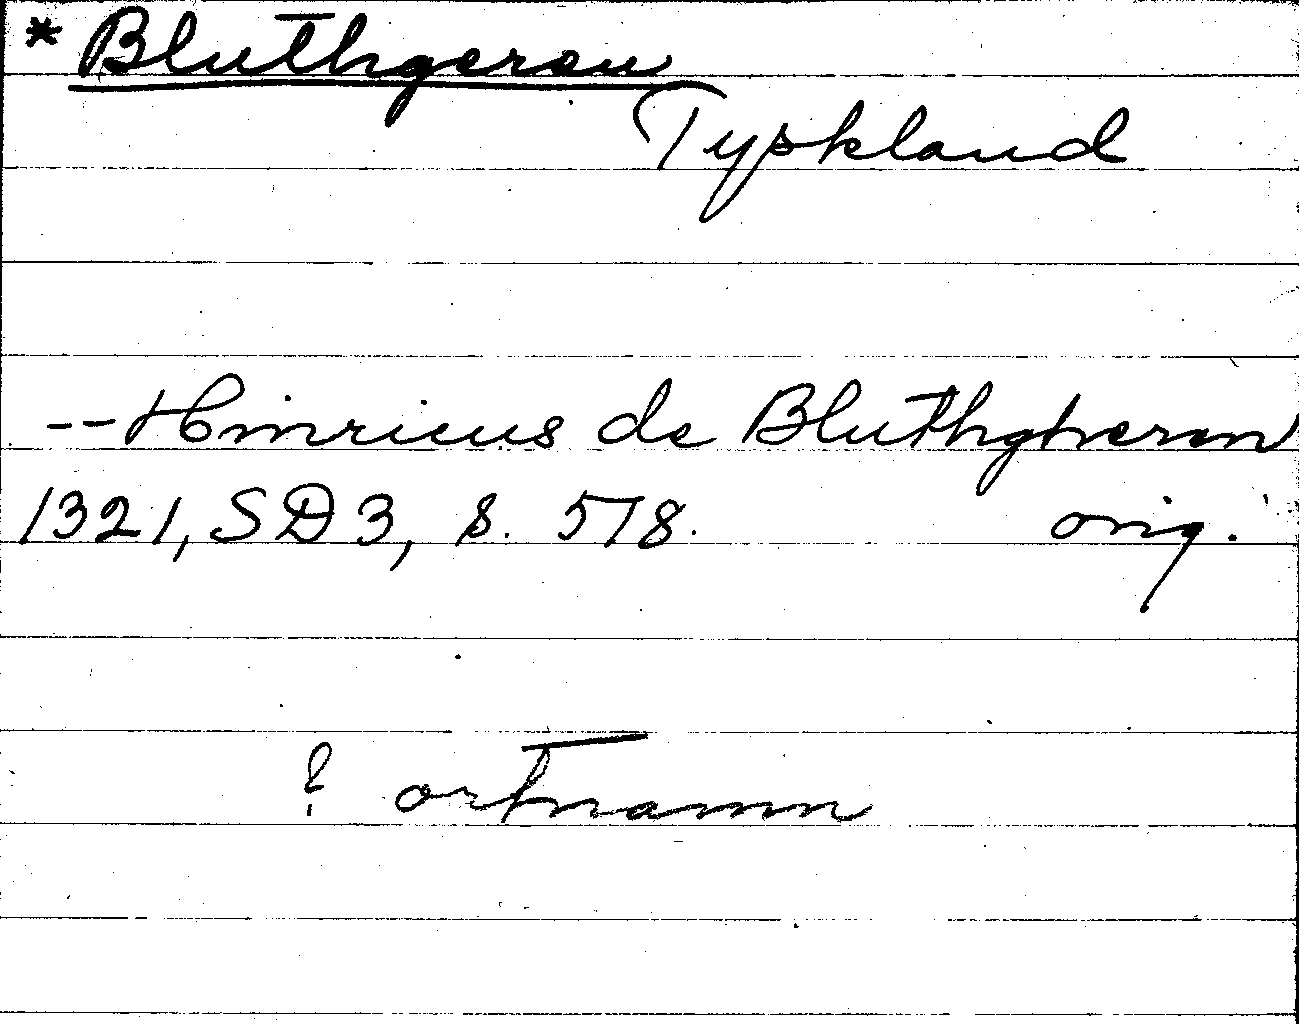 * Bluthgeren
Tyskland
-- Hinricus de Bluthgheren
1321, SD 3, s. 578. orig.
? ortnamn